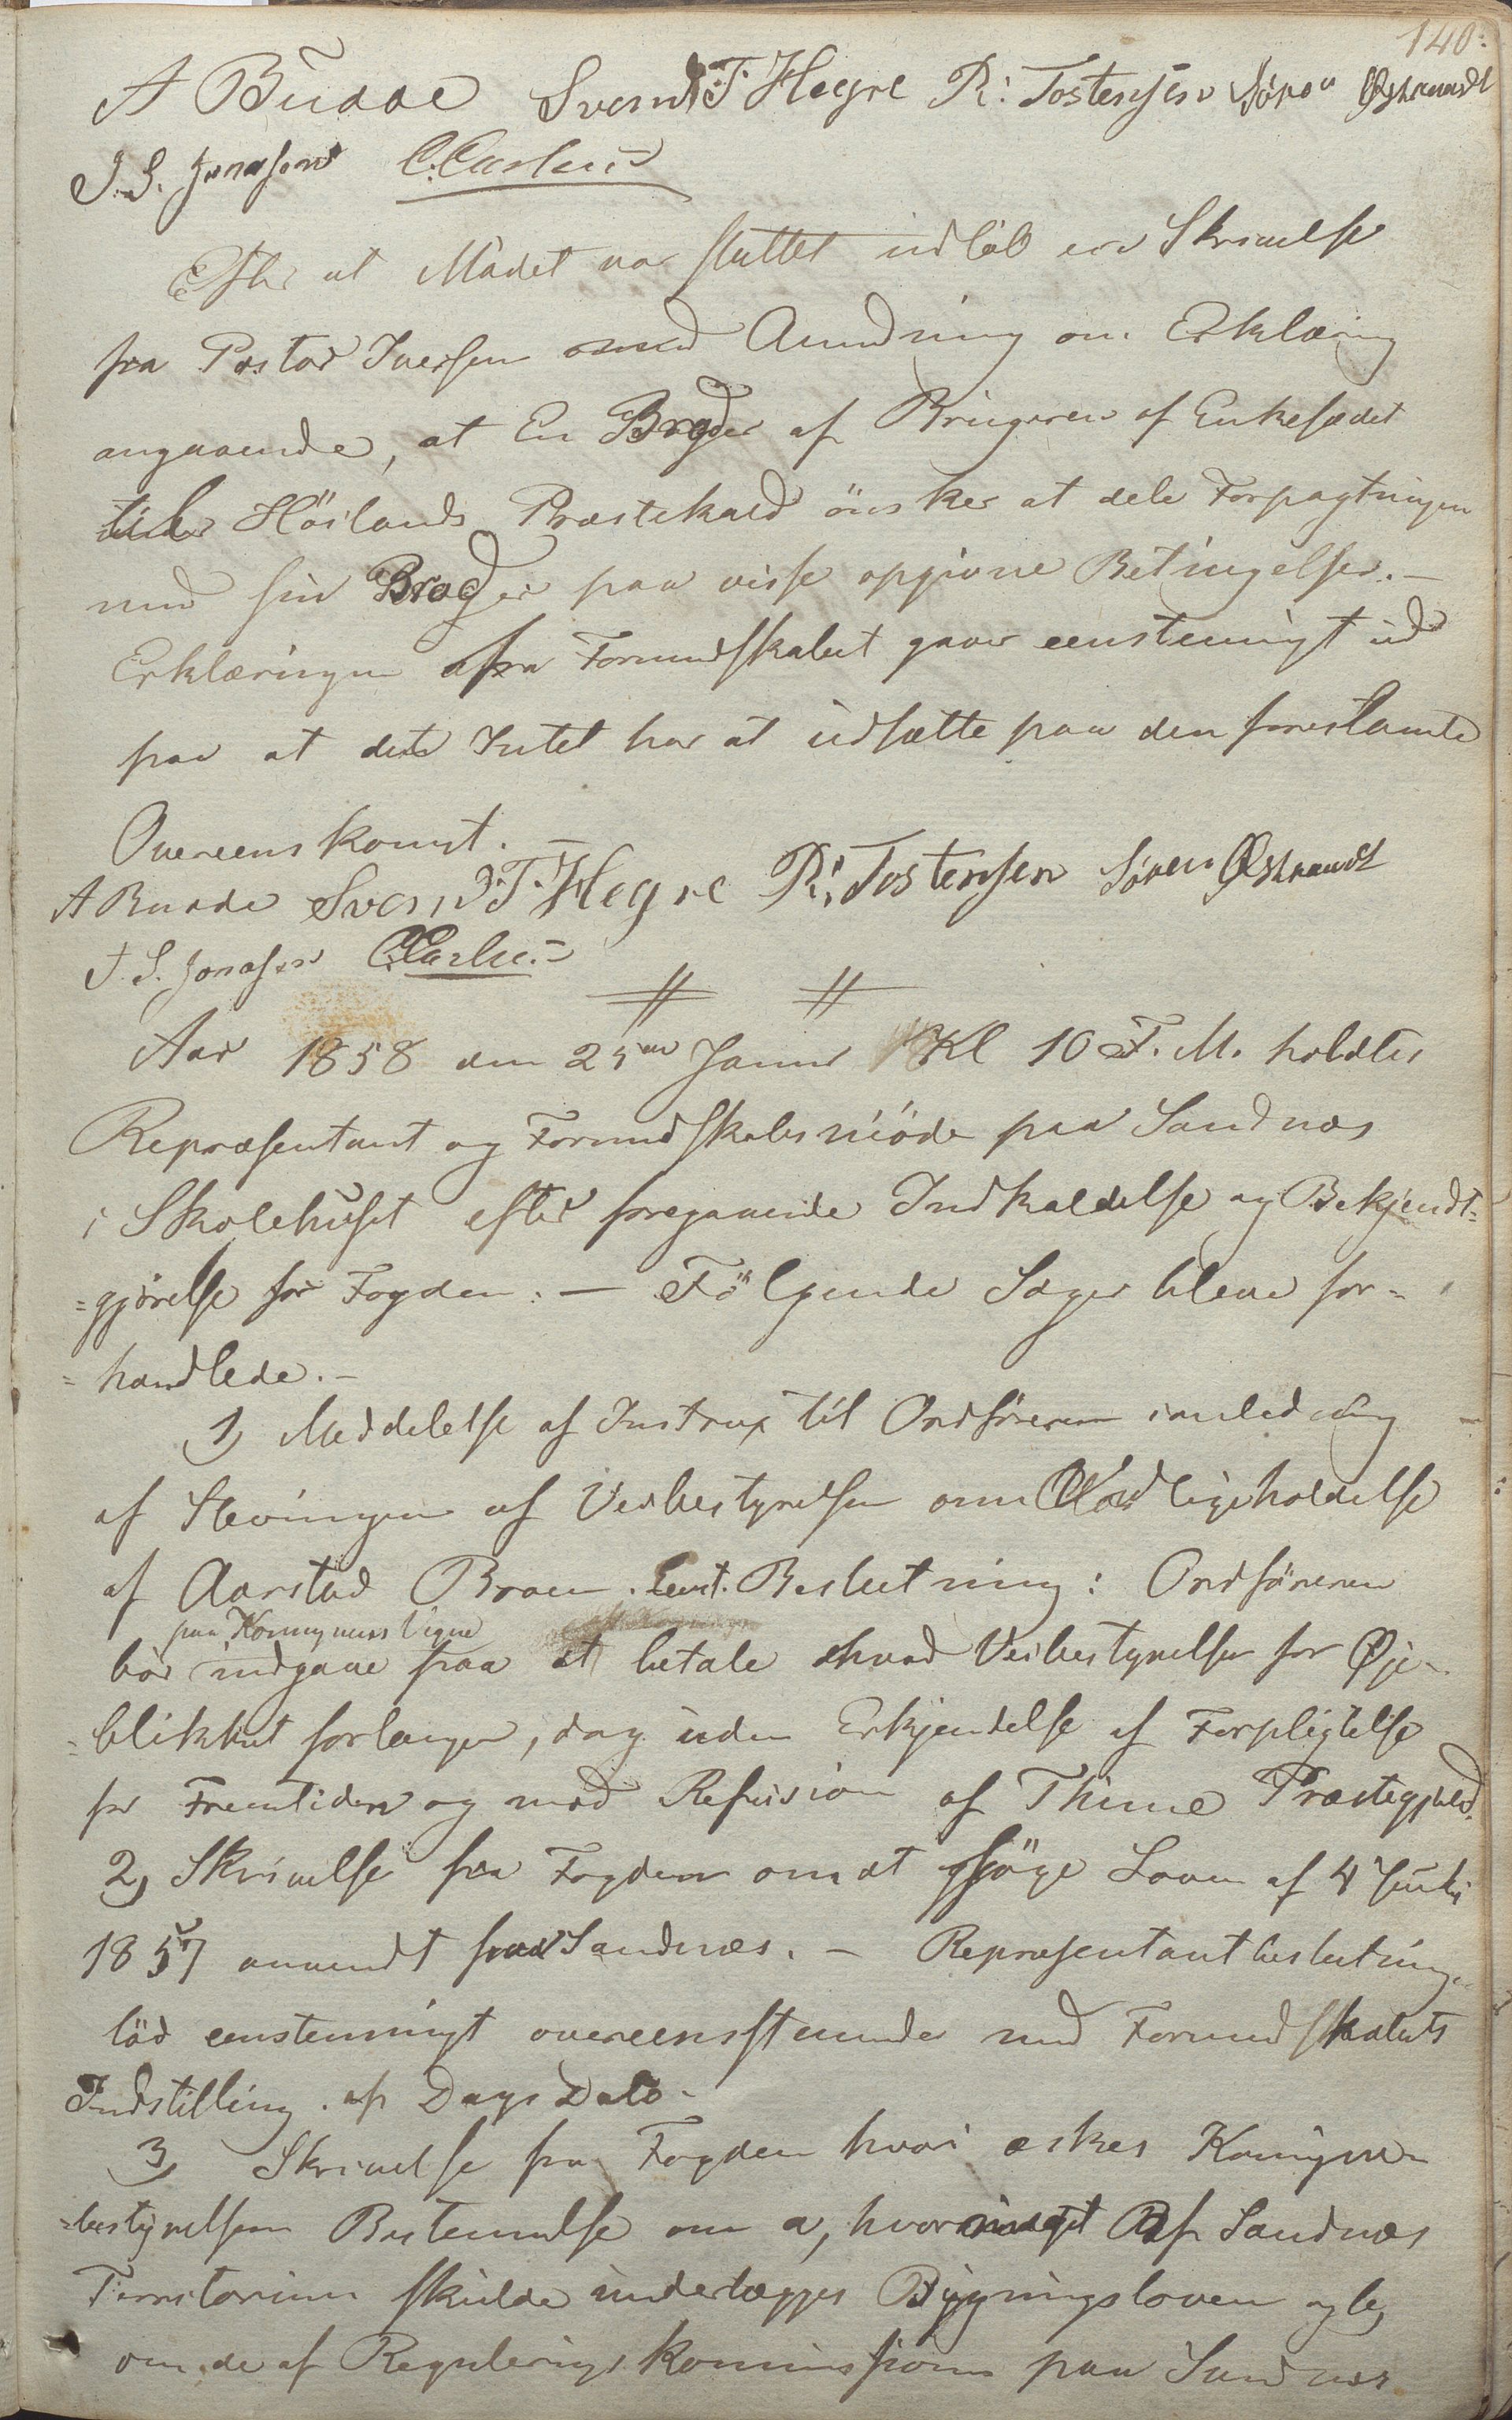 140.
A Budde Svend T. Hegre R. Tostensen Sören Östrandt
J. S. Jonassen C. Carlsen
Efter at Mödet var sluttet indlöb en Skrivelse
fra Pastor Iversen med Anmodning om Erklæring
angaaende, at En Broder af Brugeren af Enkesædet
til Höilands Præstekald önsker at dele Forpagtningen
med sin Broder paa visse opgivne Betingelser. —
Erklæringen fra Formandskabet gaaer eenstemmigt ud
paa at det Intet har at udsætte paa den forestaaende
Overeenskomst. —
A Budde Svend T. Hegre R. Tostensen Sören Östrandt
J. S. Jonassen C. Carlsen
Aar 1858 den 25de Januar Kl 10 F. M. holdtes
Repræsentant og Formandskabsmöde paa Sandnæs
i Skolehuset efter foregaaende Indkaldelse og Bekjendt-
=gjörelse for Fogden. — Fölgende Sager bleve for-
=handlede. —
1) Meddelelse af Instrux til Ordföreren i anledning
af Stevningen af Veibestyrelsen om Vedligeholdelse
af Aarstad Broen. Eenst. Beslutning: Ordföreren
paa Kommunens Vegne
bör indgaae paa at betale hvad Veibestyrelsen for Øje-
=blikket forlanger, dog uden Erkjendelse af Forpligtelse
for Fremtiden og mod Refusion af Thime Præstegjeld.
2) Skrivelse fra Fogden om at söge Loven af
1857 anvendt paa Sandnæs. — Repræsentantbeslutningen
löd eenstemmigt overeensstemmende med Formandskabets
Indstilling af Dags Dato.
3) Skrivelse fra Fogden hvori æskes Kommune-
=bestyrelsens Bestemmelse om a, hvormeget af Sandnæs
Territorium skulde underlægges Bygningsloven og b,
om de af Regulerings Kommissionen paa Sandnæs